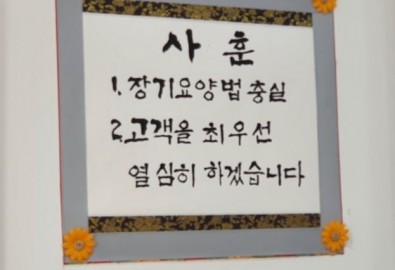 사훈
1. 장기요양법 충실
2. 고객을 최우선
열심히 하겠습니다